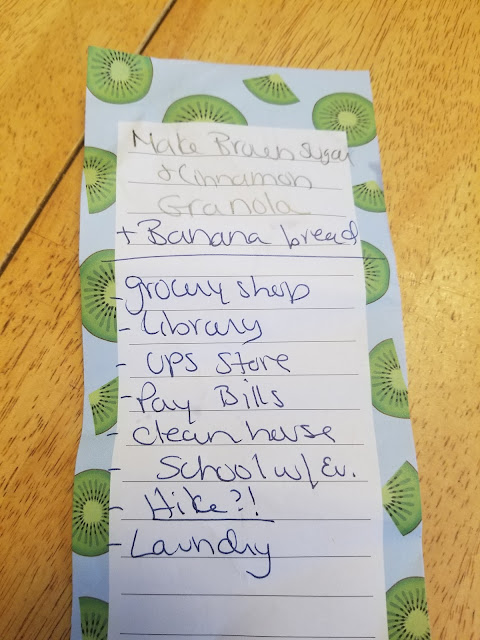 Make Brown Sugar
& Cinnamon
Granola
+ Banana bread
- grocery shop
- Library
- UPS Store
- Pay Bills
- clean house
- School w/ Ev.
- Hike?!
- Laundry